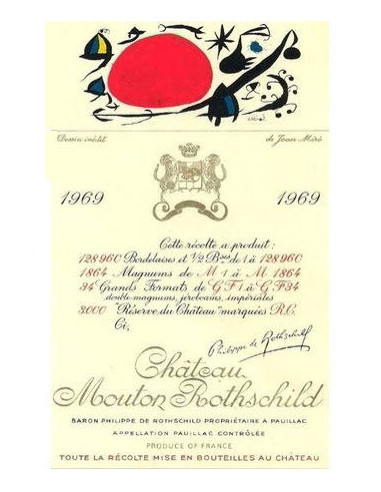 Dessin inédit de Joan Miró
1969 1969
Cette récolte a produit :
128960 Bordelaises et 1/2 Bses de 1 à 128960
1864 Magnums de M 1 à M 1864
34 Grands Formats de G F 1 à G F 34
double-magnums, jéroboams, impériales
3000 "Réserve du Château" marquées R.C.
Ci,
Philippe de Rothschild
Château
Mouton Rothschild
BARON PHILIPPE DE ROTHSCHILD PROPRIÉTAIRE A PAUILLAC
APPELLATION PAUILLAC CONTRÔLÉE
PRODUCE OF FRANCE
TOUTE LA RÉCOLTE MISE EN BOUTEILLES AU CHÂTEAU